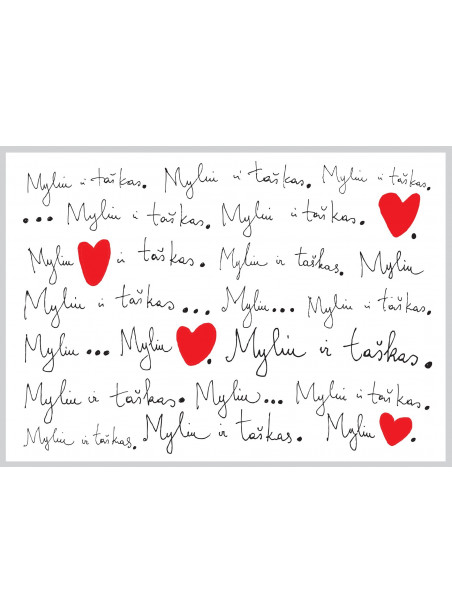 Myliu ir taškas. Myliu ir taškas. Myliu ir taškas.
... Myliu ir taškas. Myliu ir taškas. .
Myliu ir taškas. Myliu ir taškas. Myliu
Myliu ir taškas... Myliu... Myliu ir taškas.
Myliu... Myliu . Myliu ir taškas.
Myliu ir taškas. Myliu... Myliu ir taškas.
Myliu ir taškas. Myliu ir taškas. Myliu .